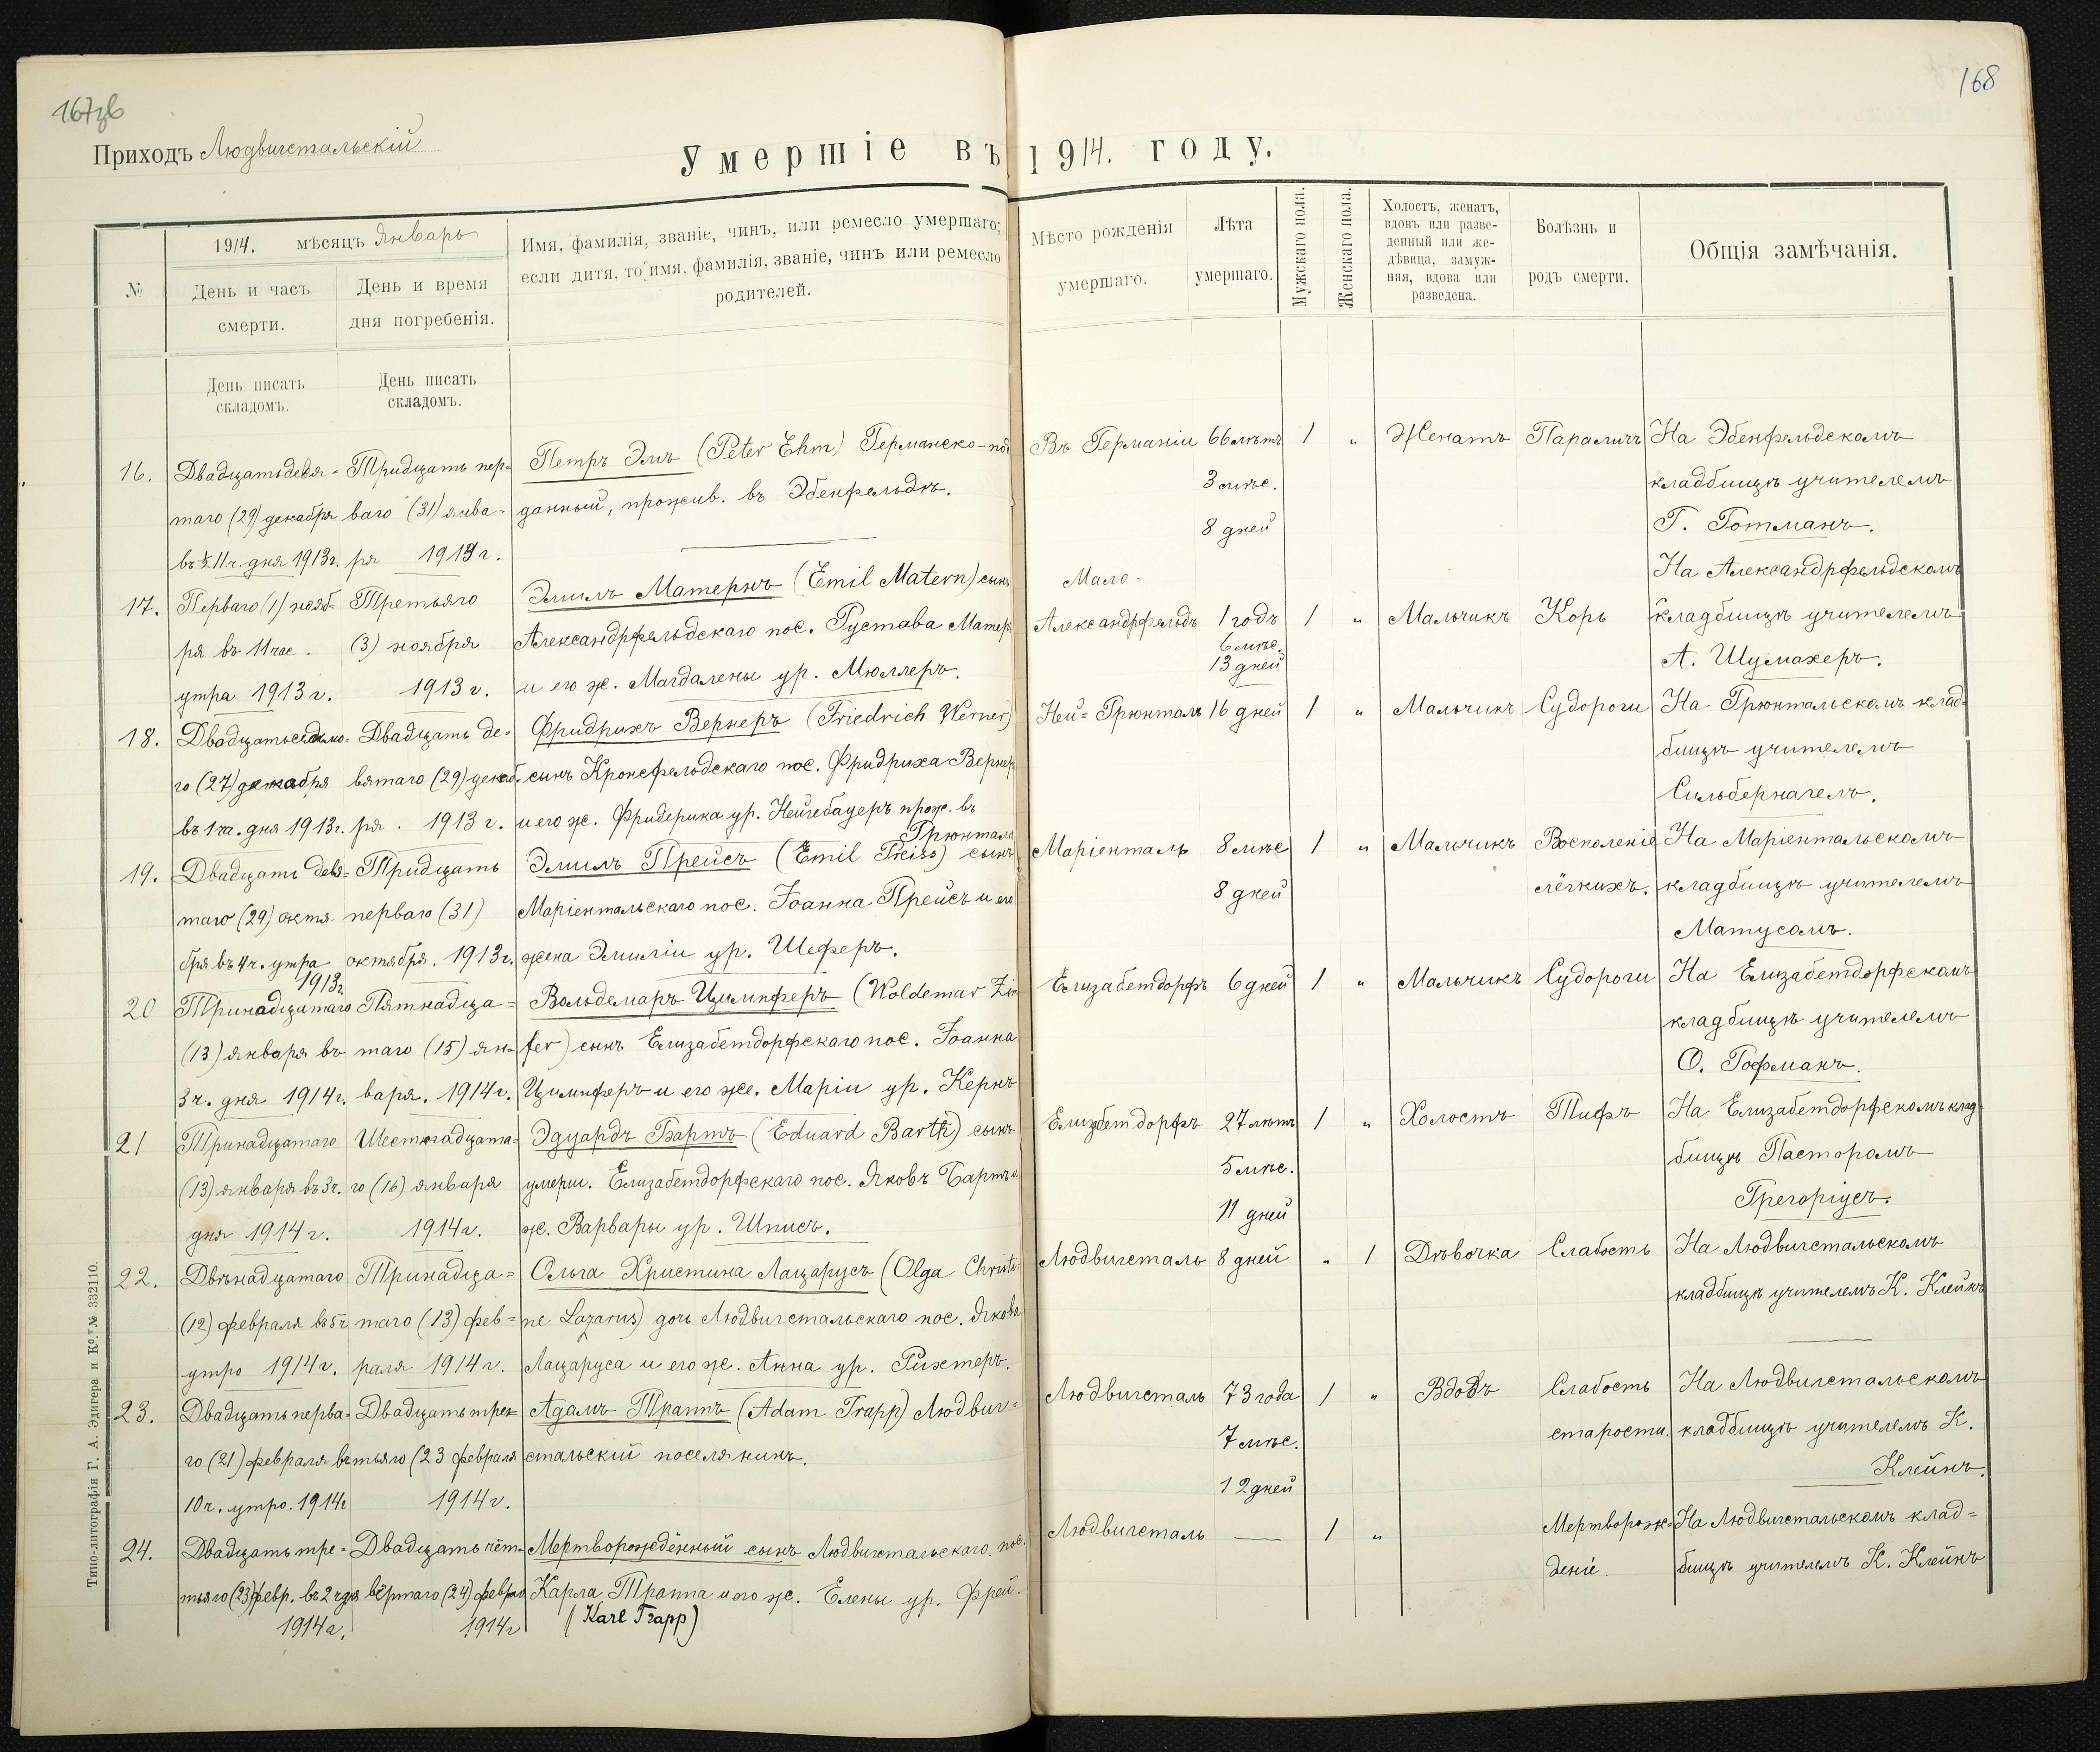 167зв
168
Приходъ Людвигстальскій
Умершіе въ 1914. году.
№
1914. мѣсяцъ Январь
День и часъ
смерти.
День и время
дня погребенія.
День писать
складомъ.
День писать
складомъ.
Имя, фамилія, званіе, чинъ, или ремесло умершаго;
если дитя, то имя, фамилія, званіе, чинъ или ремесло
родителей.
Мѣсто рожденія
умершаго.
Лѣта
умершаго.
Мужскаго пола.
Женскаго пола.
Холостъ, женатъ,
вдовъ или разве-
денный или же-
дѣвица, замуж-
няя, вдова или
разведена.
Болѣзнь и
родъ смерти.
Общія замѣчанія.
16.
Двадцатьдевя-
таго (29) декабря
въ ½ 11 ч. дня 1913 г.
Тридцать пер-
ваго (31) янва-
ря 1914 г.
Петръ Эмъ (Peter Ehm) Германско-под
данный, прожив. въ Эбенфельдѣ.
Въ Германіи
66 лѣтъ
3 мѣс.
8 дней
1 „
Женатъ
Параличъ
На Эбенфельдскомъ
кладбищѣ учителемъ
Г. Готманъ.
17.
Перваго (1) нояб-
ря въ 11 час.
утра 1913 г.
Третьяго
(3) ноября
1913 г.
Эмилъ Матернъ (Emil Matern) сынъ
Александрфельдскаго пос. Густава Матер
и его ж. Магдалены ур. Мюллеръ.
Мало-
Александрфельдъ
1 годъ
6 мѣс.
13 дней
1 „
Мальчикъ
Корь
На Александрфельдскомъ
кладбищѣ учителемъ
А. Шумахеръ.
18.
Двадцатьседьмо-
го (27) декабря
въ 1 ча. дня 1913 г.
Двадцать де-
вятаго (29) декаб-
ря. 1913 г.
Фридрихъ Вернеръ (Friedrich Werner)
сынъ Кронсфельдскаго пос. Фридриха Вернер
и его ж. Фридерика ур. Нейгебауеръ прож. въ
Грюнталѣ
Ней-Грюнталь
16 дней
1 „
Мальчикъ
Судороги
На Грюнтальскомъ клад-
бищѣ учителемъ
Сильбернагель.
19.
Двадцать девя-
таго (29) октя
бря въ 4 ч. утра
1913 г.
Тридцать
перваго (31)
октября. 1913 г.
Эмилъ Прейсъ (Emil Preiss) сынъ
Маріентальскаго пос. Іоанна Прейсъ и его
жена Эмиліи ур. Шеферъ.
Маріенталь
8 мѣс
8 дней
1 „
Мальчикъ
Воспаленіе
лёгкихъ.
На Маріентальскомъ
кладбищѣ учителемъ
Матусомъ.
20
Тринадцатаго
(13) января въ
3 ч. дня 1914 г.
Пятнадца-
таго (15) ян-
варя. 1914 г.
Вольдемаръ Цимпферъ (Woldemar Zim
fer) сынъ Елизабетдорфскаго пос. Іоанна
Цимпферъ и его же. Маріи ур. Кернъ
Елизабетдорфъ
6 дней
1 „
Мальчикъ
Судороги
На Елизабетдорфскомъ
кладбищѣ учителемъ
О. Гофманъ.
21
Тринадцатаго
(13) января въ 3 ч.
дня 1914 г.
Шестнадцата-
го (16) января
1914 г.
Эдуардъ Бартъ (Eduard Barth) сынъ
умерш. Елизабетдорфскаго пос. Яковъ Бартъ и
ж. Варвары ур. Шписъ.
Елизбетдорфъ
27 лѣтъ
5 мѣс.
11 дней
1 „
Холостъ
Тифъ
На Елизабетдорфскомъ клад-
бищѣ Пасторомъ
Грегоріусъ.
22.
Двѣнадцатаго
(12) февраля въ 5 ч
утро 1914 г.
Тринадца-
таго (13) фев-
раля 1914 г.
Ольга Христина Лацарусъ (Olga Christi-
ne Lazarus) дочь Людвигстальскаго пос. Якова
Лацаруса и его ж. Анна ур. Рихтеръ.
Людвигсталь
8 дней
„ 1
Дѣвочка
Слабость
На Людвигстальскомъ
кладбищѣ учителемъ К. Клейнъ
23.
Двадцать перва-
го (21) февраля въ
10 ч. утро. 1914 г
Двадцать трет
тьяго (23 февраля
1914 г.
Адамъ Траппъ (Adam Trapp) Людвиг-
стальскій поселянинъ.
Людвигсталь
73 года
7 мѣс.
12 дней
1 „
Вдовъ
Слабость
старости.
На Людвигстальскомъ
кладбищѣ учителемъ К.
Клейнъ.
24.
Двадцать тре-
тьяго (23) февр. въ 2 ч дня
1914 г.
Двадцать чет-
вёртаго (24) февра
1914 г
Мертворождённый сынъ Людвигстальскаго пос.
Карла Траппа и его ж. Елены ур. Фрей.
(Karl Trapp)
Людвигсталь
—
1 „
Мертворож-
деніе.
На Людвигстальскомъ клад-
бищѣ учителемъ К. Клейнъ
Типо-литографія Г. А. Эдигера и Ко. № 332110.